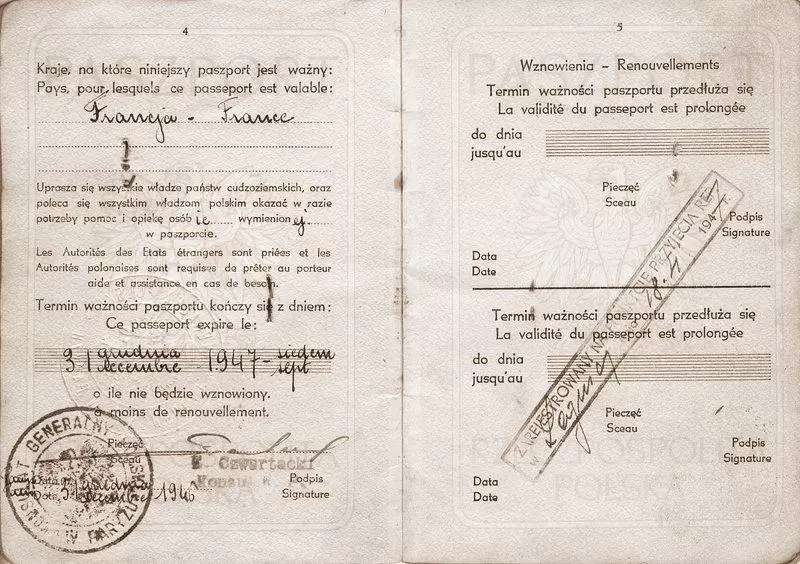 4
Kraje, na które niniejszy paszport jest ważny:
Pays, pour lesquels ce passeport est valable:
Francja - France
Uprasza się wszystkie władze państw cudzoziemskich, oraz
poleca się wszystkim władzom polskim okazać w razie
potrzeby pomoc i opiekę osób ie wymienion ej
w paszporcie.
Les Autorités des Etats étrangers sont priées et les
Autorités polonaises sont requises de prêter au porteur
aide et assistance en cas de besoin.
Termin ważności paszportu kończy się z dniem:
Ce passeport expire le:
31 grudnia 1947 - siedem
decembre sept
o ile nie będzie wznowiony.
à moins de renouvellement.
Pieczęć
Sceau
E. Czwertacki
Podpis
Signature
Data
Date
31 grudnia 1946
decembre
5
Wznowienia - Renouvellements
Termin ważności paszportu przedłuża się
La validité du passeport est prolongée
do dnia
jusqu'au
Pieczęć
Sceau
Podpis
Signature
Data
Date
Termin ważności paszportu przedłuża się
La validité du passeport est prolongée
do dnia
jusqu'au
Pieczęć
Sceau
Podpis
Signature
Data
Date
ZAREJESTROWANY PRZYJĘCIA